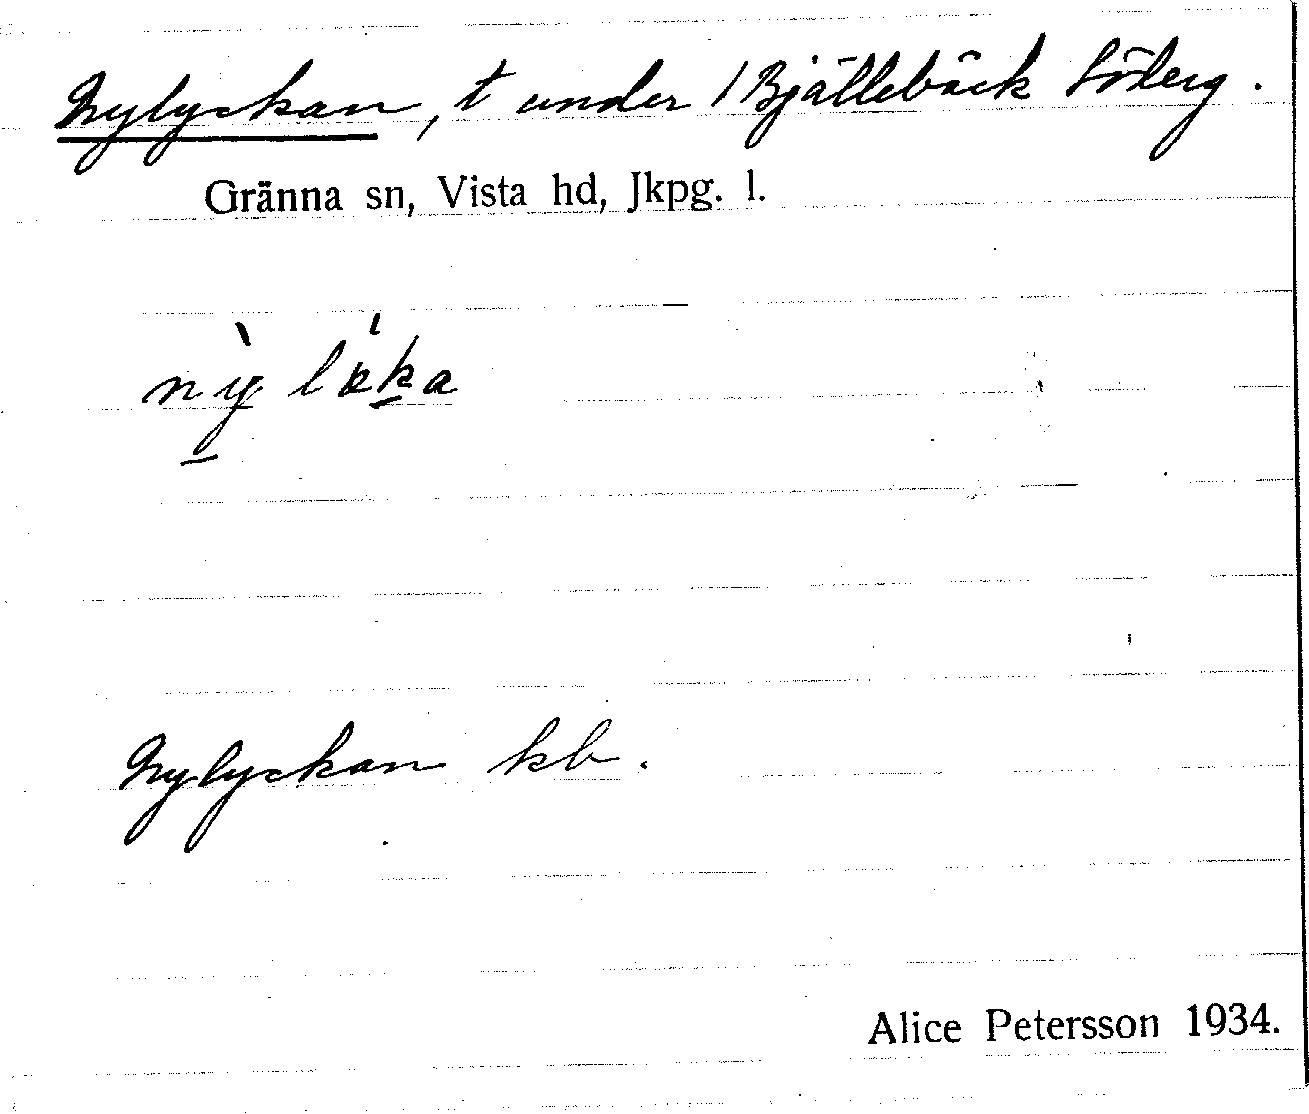 Nylyckan, t under 1 Bjällebäck Söderg.
Gränna sn, Vista hd, Jkpg. l.
Nylyckan kb.
Alice Petersson 1934.